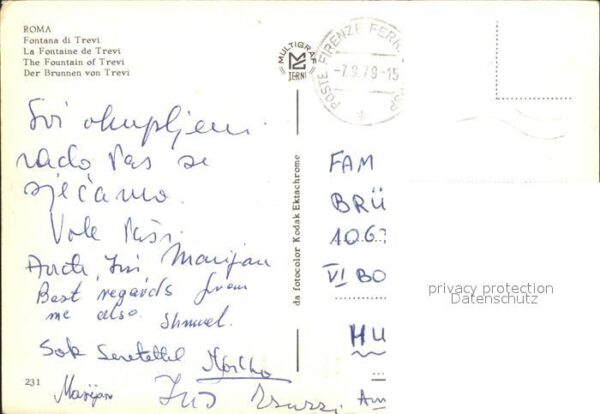 ROMA
Fontana di Trevi
La Fontaine de Trevi
The Fountain of Trevi
Der Brunnen von Trevi
MULTIGRAF
TERNI
POSTE FIRENZE FERR
-7.9.79-15
Svi okupljeni
rado Vas se
sjećamo.
Vole Vaši
Marijan
Best regards from
me also. Shmuel.
Sok Szeretettel
Marijan
231
da fotocolor Kodak Ektachrome
FAM
BRÜ
106
VI BO
HU
privacy protection
Datenschutz